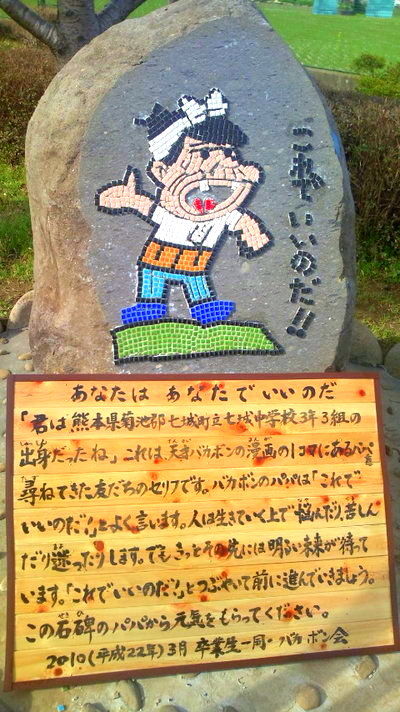 これでいいのだ!!
あなたは あなたでいいのだ
「君は熊本県菊池郡七城町立七城中学校3年3組の
出身だったね。」これは、天才バカボンの漫画の1コマにあるパパを
尋ねてきた友だちのセリフです。バカボンのパパは「これで
いいのだ!」とよく言います。人は生きていく上で悩んだり、苦しん
だり、迷ったりします。でも、きっとその先には明るい未来が待って
います。「これでいいのだ!」とつぶやいて前に進んでいきましょう。
この石碑のパパから元気をもらってください。
2010(平成22年)3月 卒業生一同・バカボン会